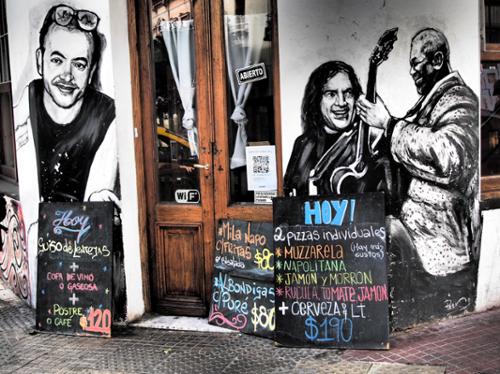 ABIERTO
WiFi
Hoy
Guiso de Lentejas
+
COPA DE VINO
O GASEOSA
+
POSTRE
O CAFE $120
*Mila Napo
C/Fritas
o ensalada $8
*Albondigas
c/Puré $80
HOY!
2 pizzas individuales
*MUZZARELA (Hay más
*NAPOLITANA gustos)
*JAMON y MORRON
*RUCULA, TOMATE, JAMON
+ CERVEZA 1 LT
$190